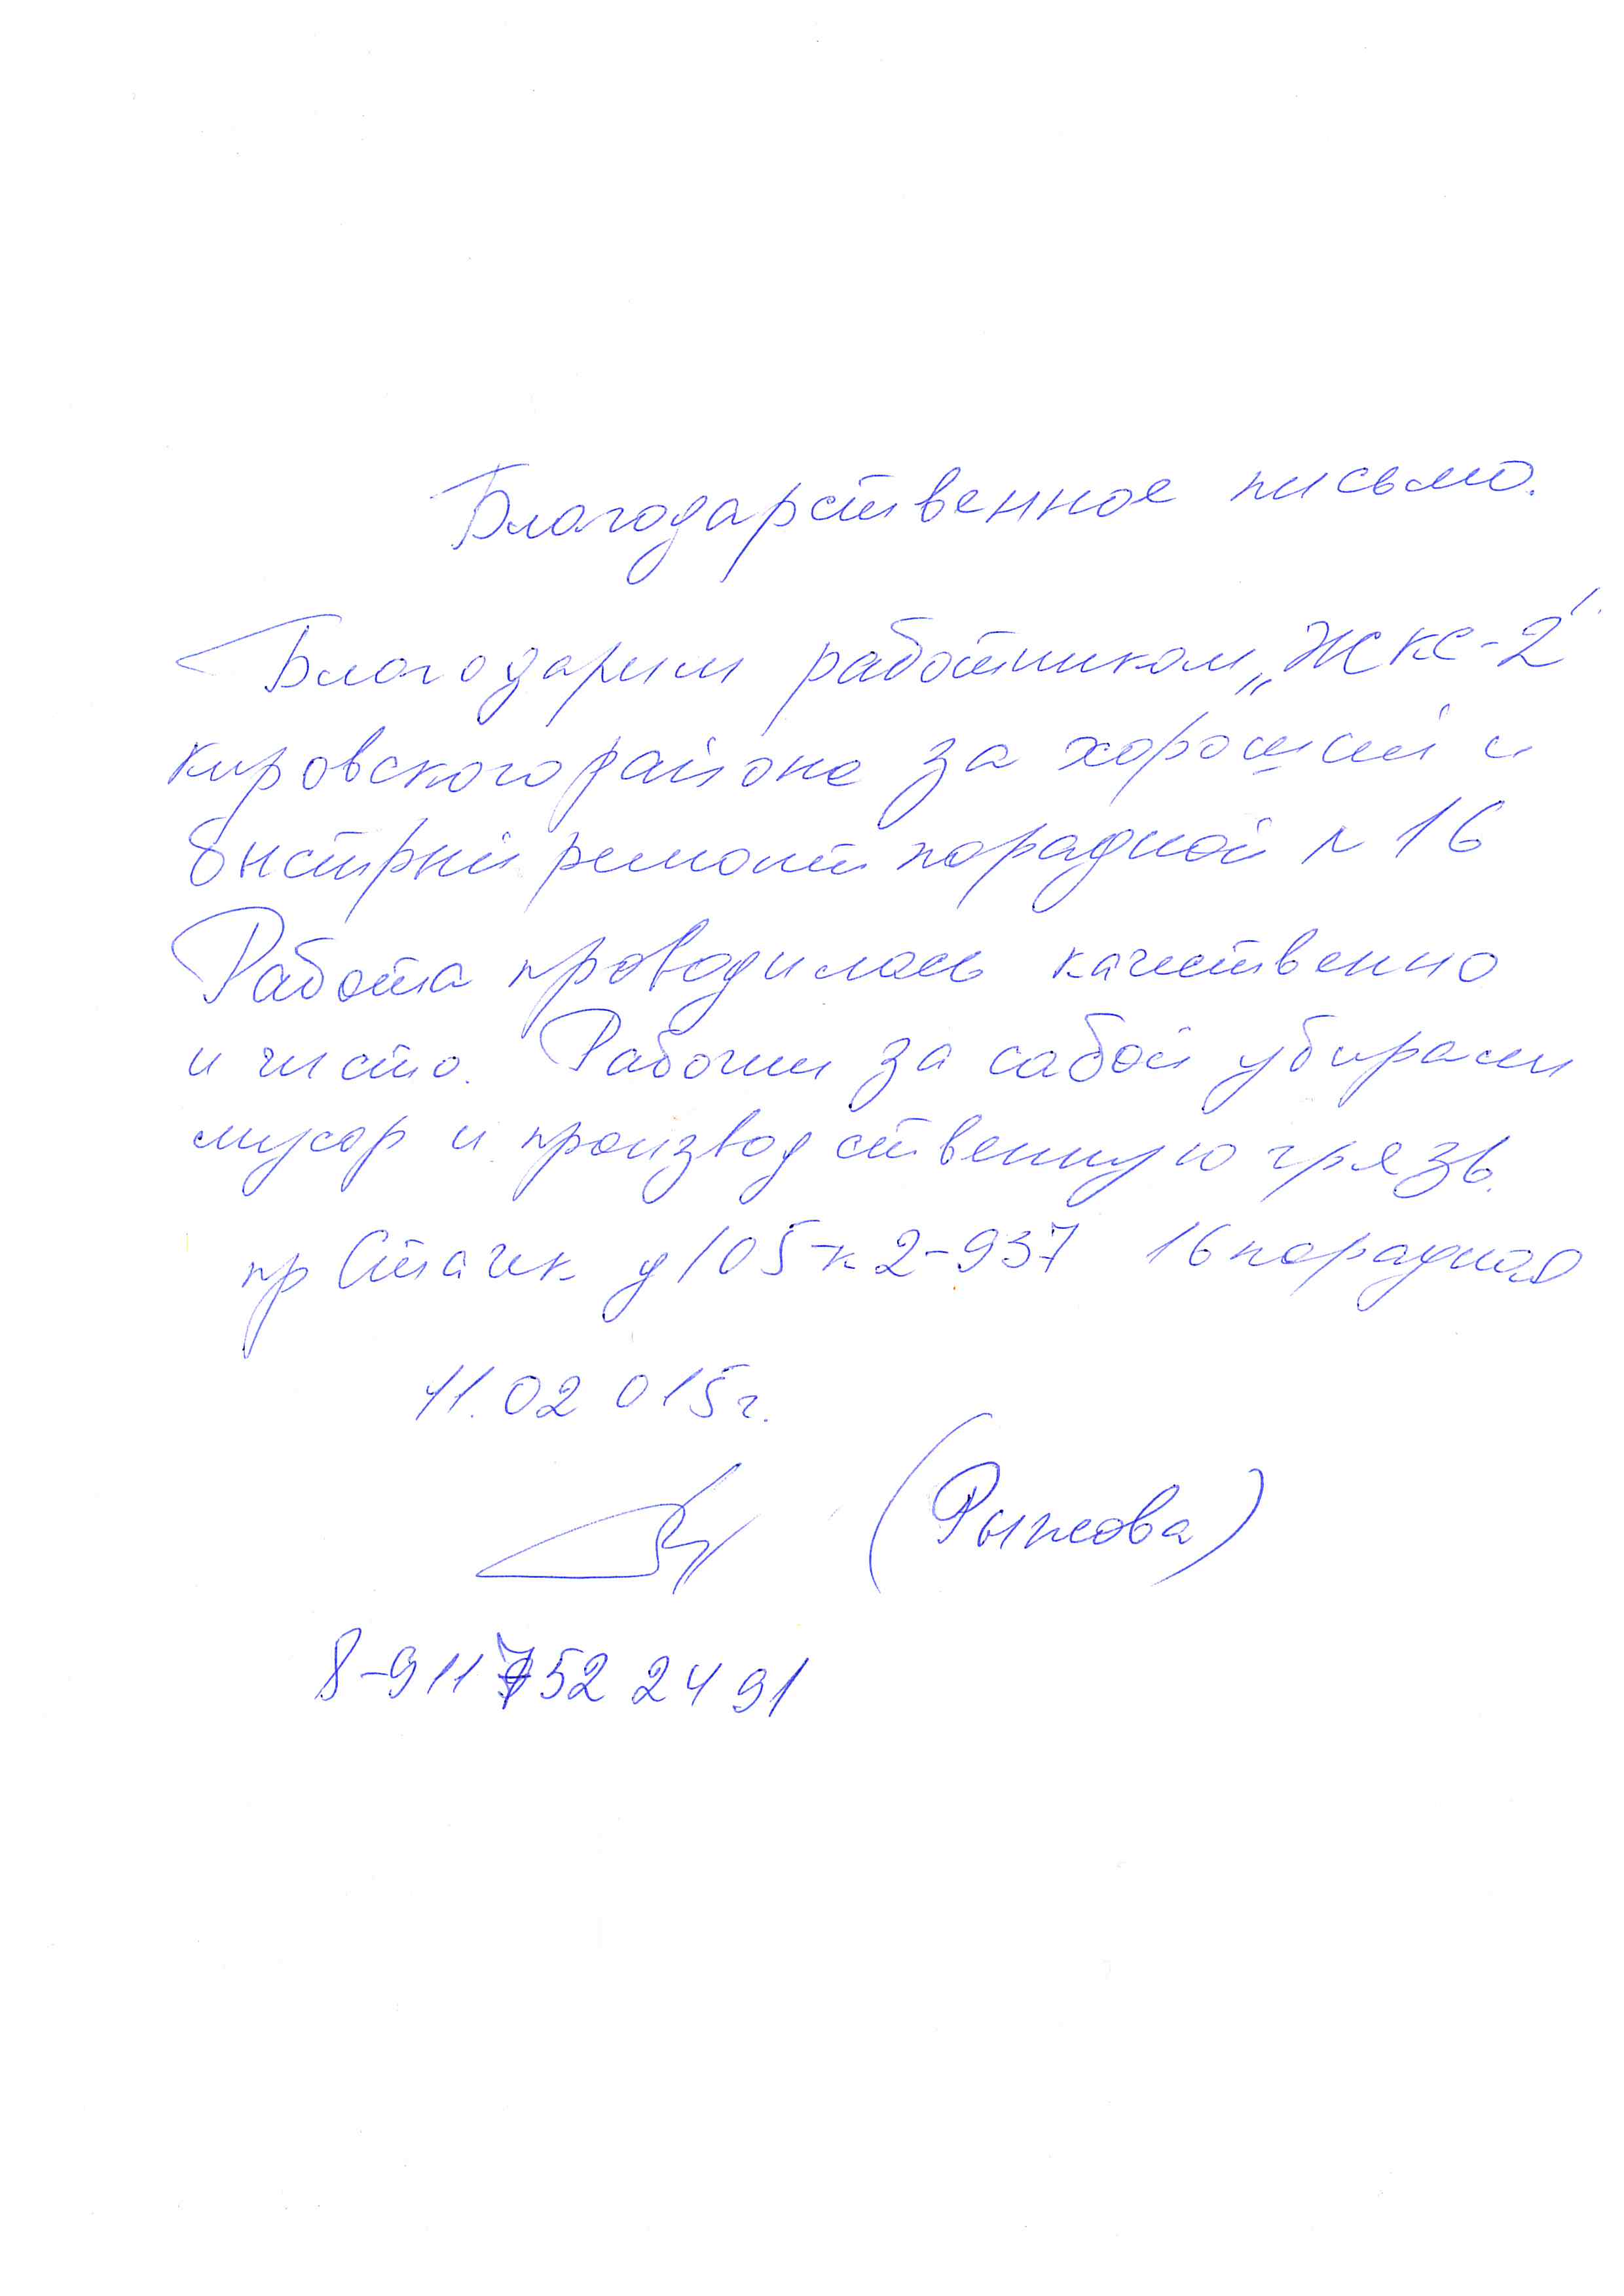 Благодарственное письмо.
Благодарим работников „ЖКС-2"
кировского района за хороший и
быстрый ремонт парадной № 16
Работа проводилась качественно
и чисто. Рабочии за сабой убирали
мусор и производственную грязь.
пр Стачек д 105-к 2-937 16 парадная
11.02 015 г.
(Рыжова)
8-911 752 24 91